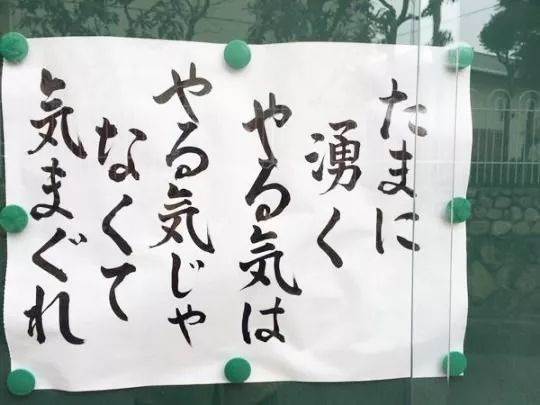 たまに
湧く
やる気は
やる気じゃ
なくて
気まぐれ